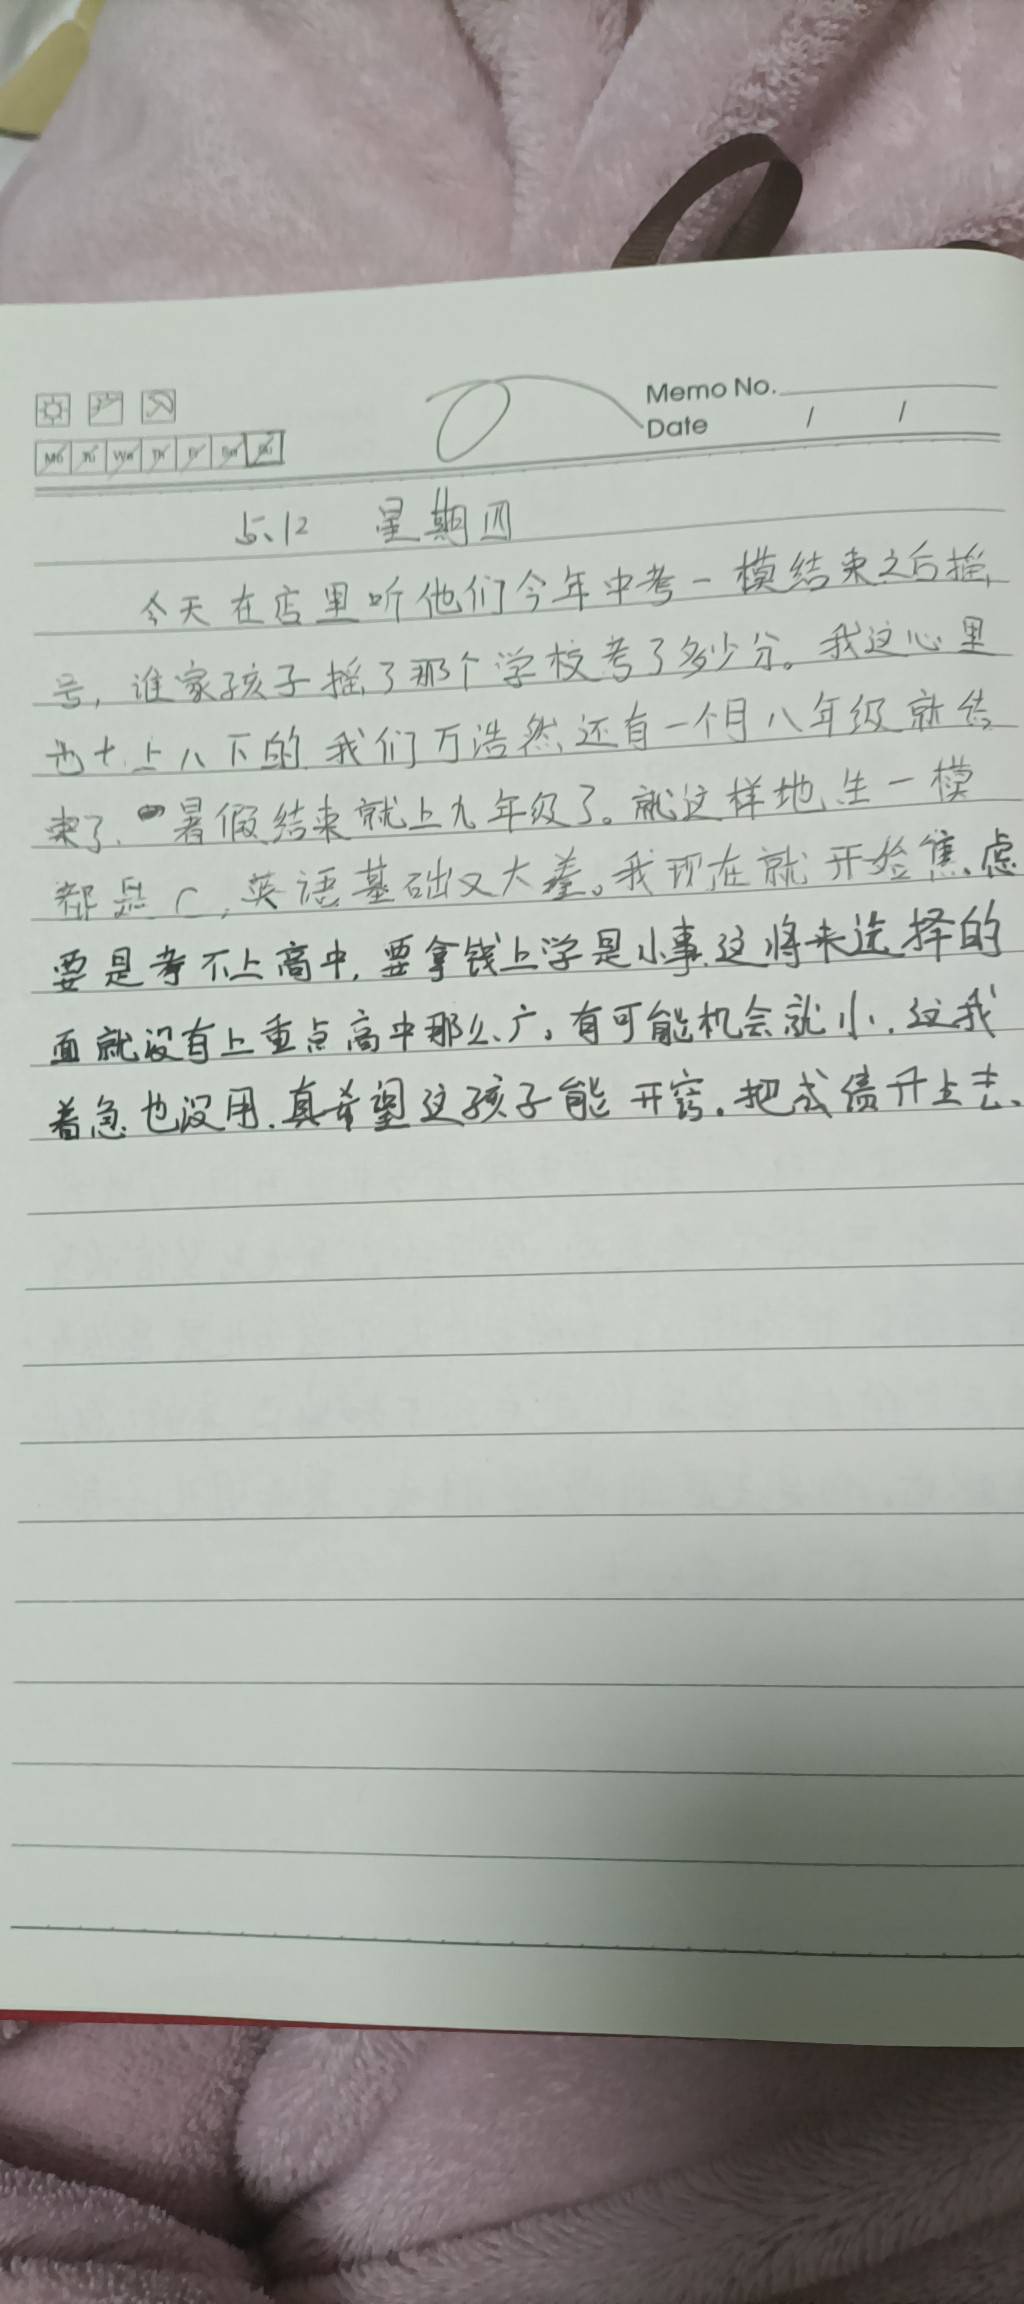 Memo No.
Date / /
Mo Tu We Th Fr Sa Su
5.12 星期四
今天在店里听他们今年中考一模结束之后摇
号，谁家孩子摇了那个学校考了多少分。我这心里
也七上八下的.我们万浩然还有一个月八年级就结
束了.暑假结束就上九年级了。就这样地、生一模
都是C,英语基础又大差。我现在就开始焦虑
要是考不上高中,要拿钱上学是小事.这将来选择的
面就没有上重点高中那么广。有可能机会就小.这我
着急也没用.真希望这孩子能开窍.把成绩升上去.